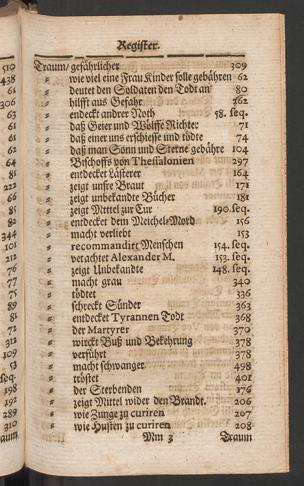 Register.
Traum/ gefährlicher 309
= wie viel eine Frau Kinder solle gebähren 62
= deutet den Soldaten den Todt an 80
= hilfft aus Gefahr 262
= endeckt andrer Noth 58. seq.
= daß Geier und Wölffe Richter 71
= daß einer uns erschiesse und tödte 74
= daß man Sonn und Sterne gebähre 104
= Bischoffs von Thessalonien 297
= entdecket Lästerer 164
= zeigt unsre Braut 171
= zeigt unbekandte Bücher 181
= zeigt Mittel zur Cur 190. seq.
= entdecket dem Meichel-Mord 156
= macht verliebt 153
= recommandirt Menschen 154. seq.
= verachtet Alexander M. 153. seq.
= zeigt Unbekandte 148. seq.
= macht grau 340
= tödtet 336
= schreckt Sünder 363
= endecket Tyrannen Todt 368
= der Martyrer 370
= wirckt Buß und Bekehrung 378
= verführt 378
= macht schwanger 498
= tröstet 401
= der Sterbenden 176
= zeigt Mittel wider den Brandt. 206
= wie Zunge zu curiren 207
= wie Husten zu curiren 208
Mm 3 Traum
510
438
61
306
63
61
61
64
81
222
66
85
82
344
101
212
76
77
75
89
81
72
312
109
53
seq.
198
192
289
310
aum